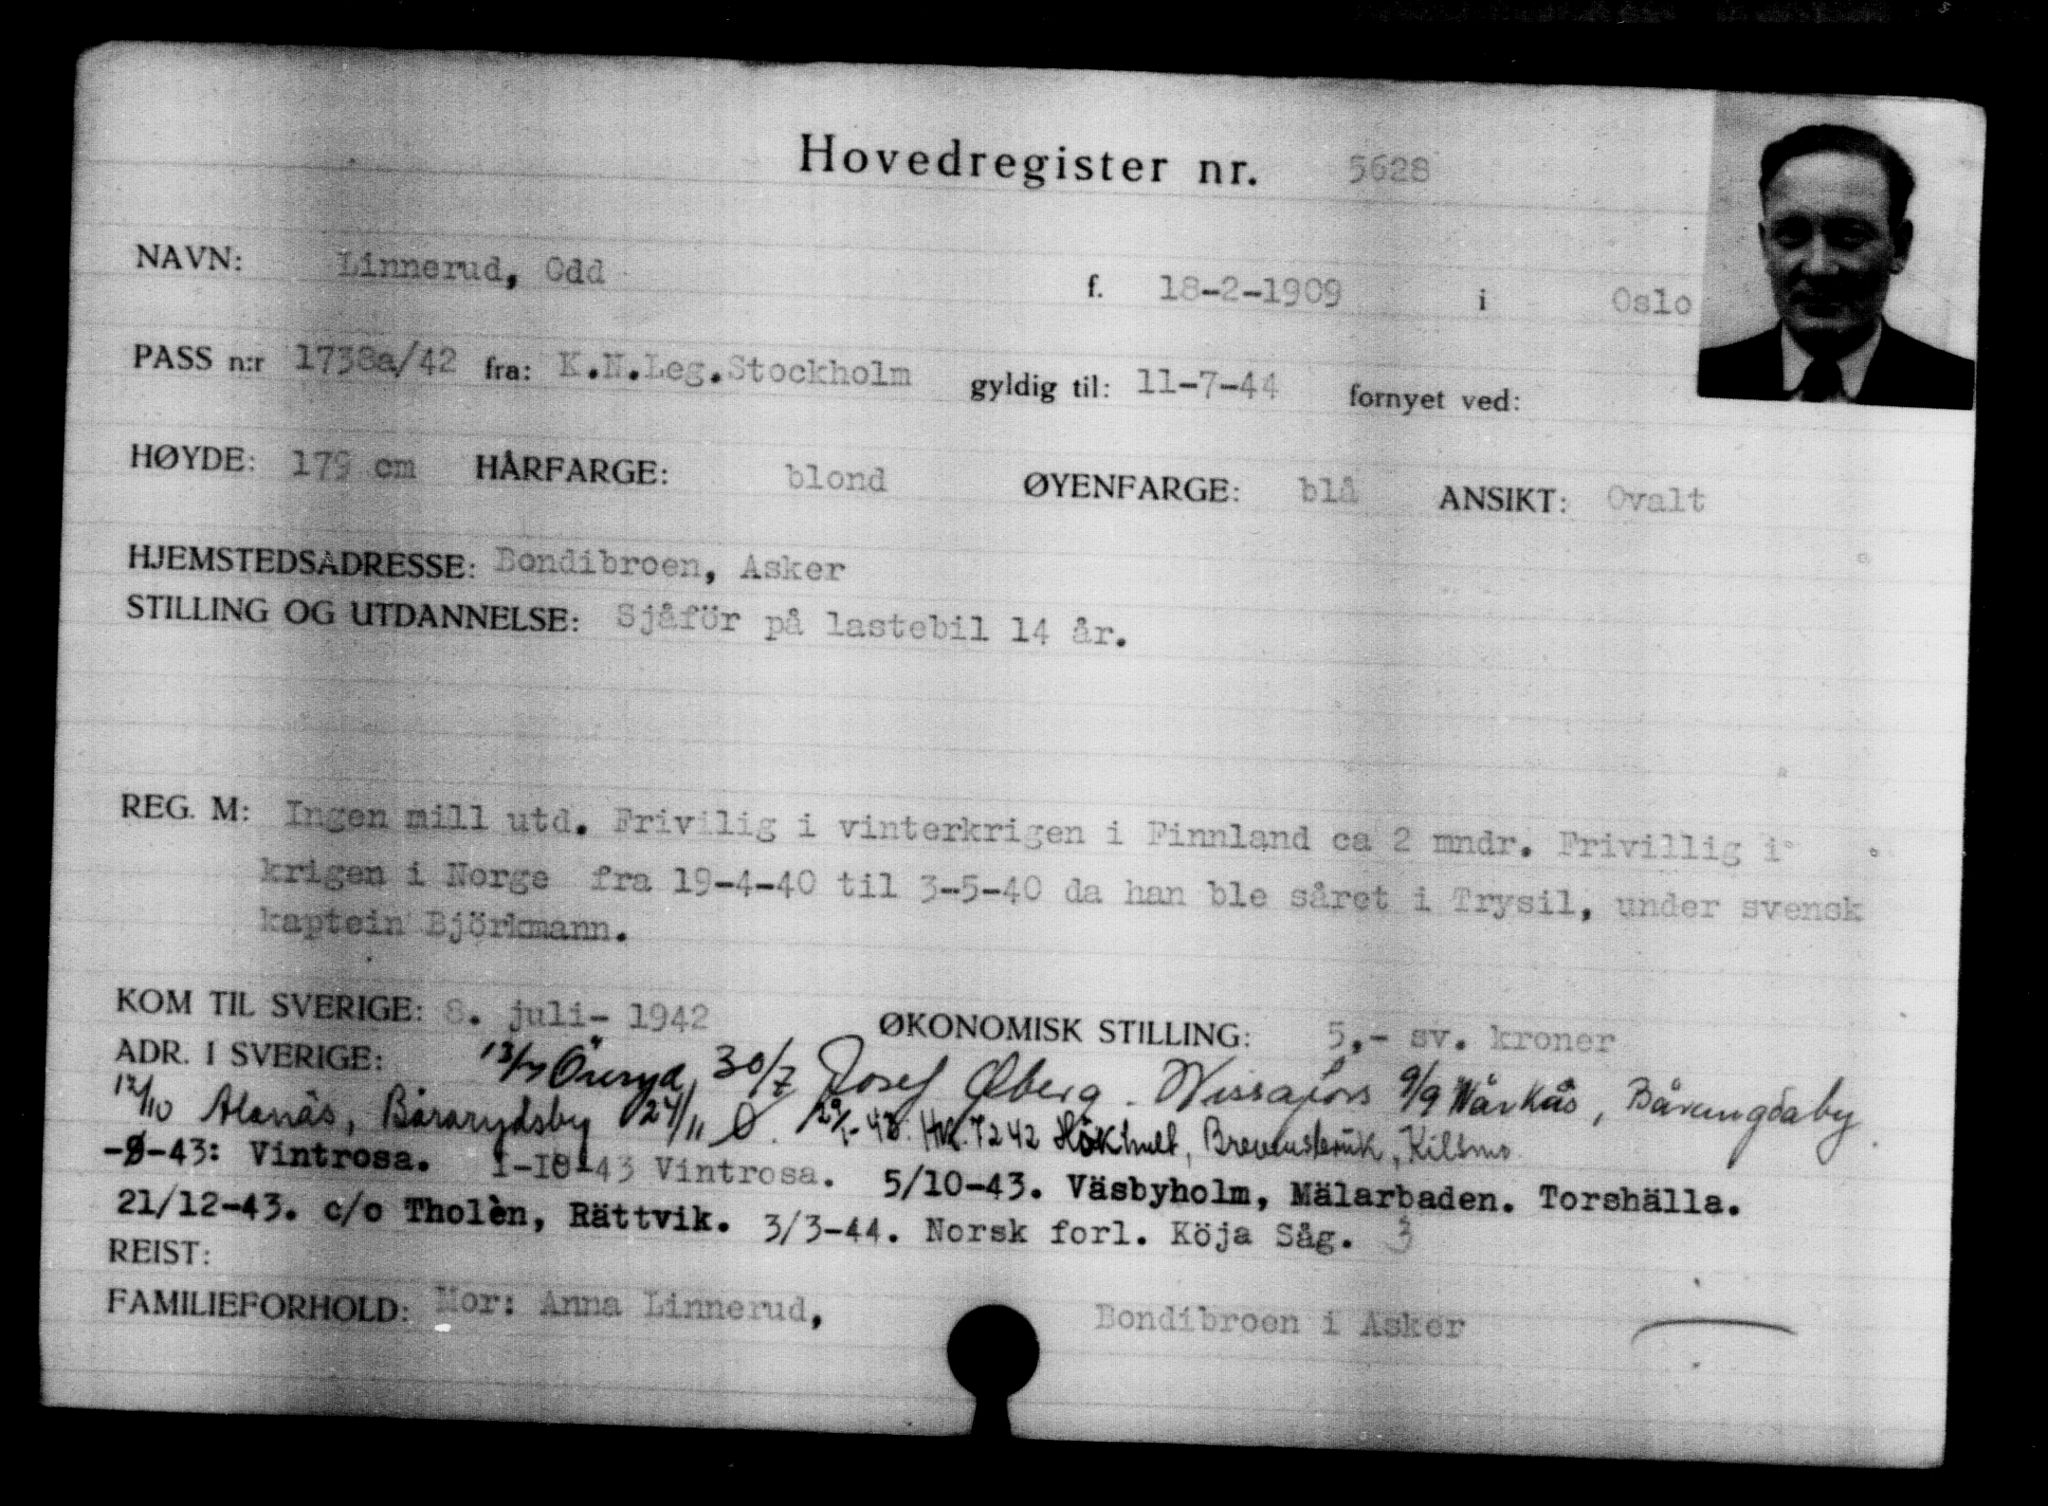 Hovedregister nr. 5628
NAVN: Linnerud, Odd f. 18-2-1909 i Oslo
PASS n:r 1738a/42 fra: K.N.Leg.Stockholm gyldig til: 11-7-44 fornyet ved:
HØYDE: 179 cm HÅRFARGE: blond ØYENFARGE: blå ANSIKT: Ovalt
HJEMSTEDSADRESSE: Bondibroen, Asker
STILLING OG UTDANNELSE: Sjåför på lastebil 14 år.
REG. M: Ingen mill utd. Frivilig i vinterkrigen i Finnland ca 2 mndr. Frivillig i
krigen i Norge fra 19-4-40 til 3-5-40 da han ble såret i Trysil, under svensk
kaptein Björkmann.
KOM TIL SVERIGE: 8. juli- 1942 ØKONOMISK STILLING: 5,- sv. kroner
ADR. I SVERIGE: 13/7 Öreryd, 30/7 Josef Øberg. Wissafors 9/9
12/10 Alanäs, Bårarydsby 24/11 Ø. Hökhult, Kilsmo
-9-43: Vintrosa. 1-10-43 Vintrosa. 5/10-43. Väsbyholm, Mälarbaden. Torshälla.
21/12-43. c/o Tholèn, Rättvik. 3/3-44. Norsk forl. Köja Såg. 3
REIST:
FAMILIEFORHOLD: Mor: Anna Linnerud, Bondibroen i Asker